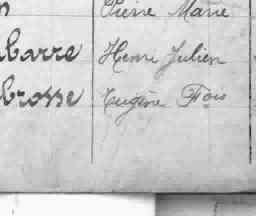 n Pierre Marie
barre Henri Julien
brosse Eugène Fois